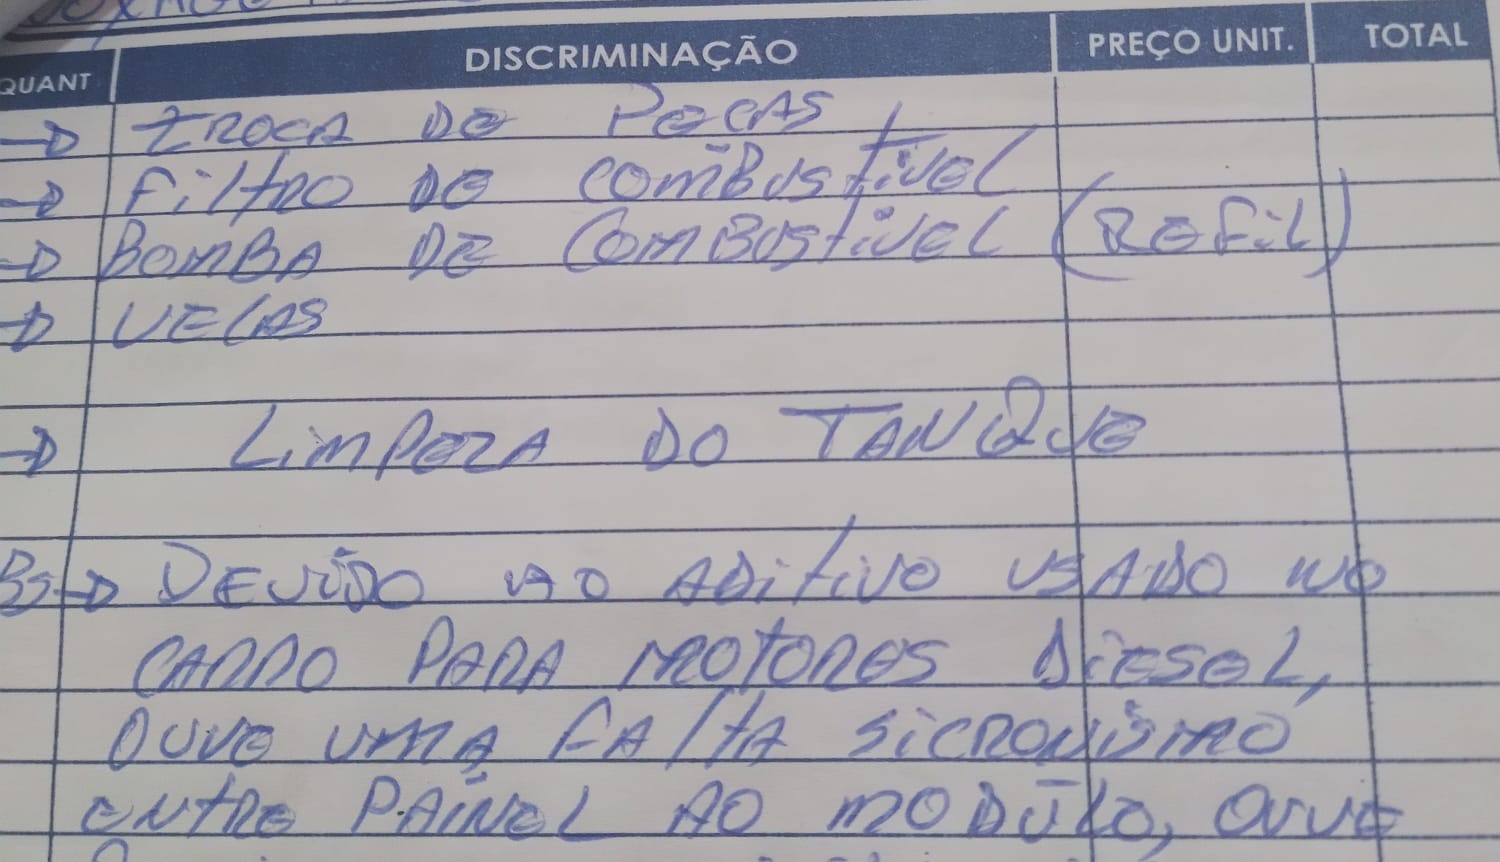 QUANT DISCRIMINAÇÃO PREÇO UNIT. TOTAL
TROCA DE PECAS
FILTRO DE COMBUSTIVEL
BOMBA DE COMBUSTIVEL (REFIL)
VELAS
LIMPEZA DO TANQUE
BS DEVIDO AO ADITIVO USADO NO
CARRO PARA MOTORES DIESEL,
OUVE UMA FALTA SICRONISMO
ENTRE PAINEL AO MODULO, OUVE